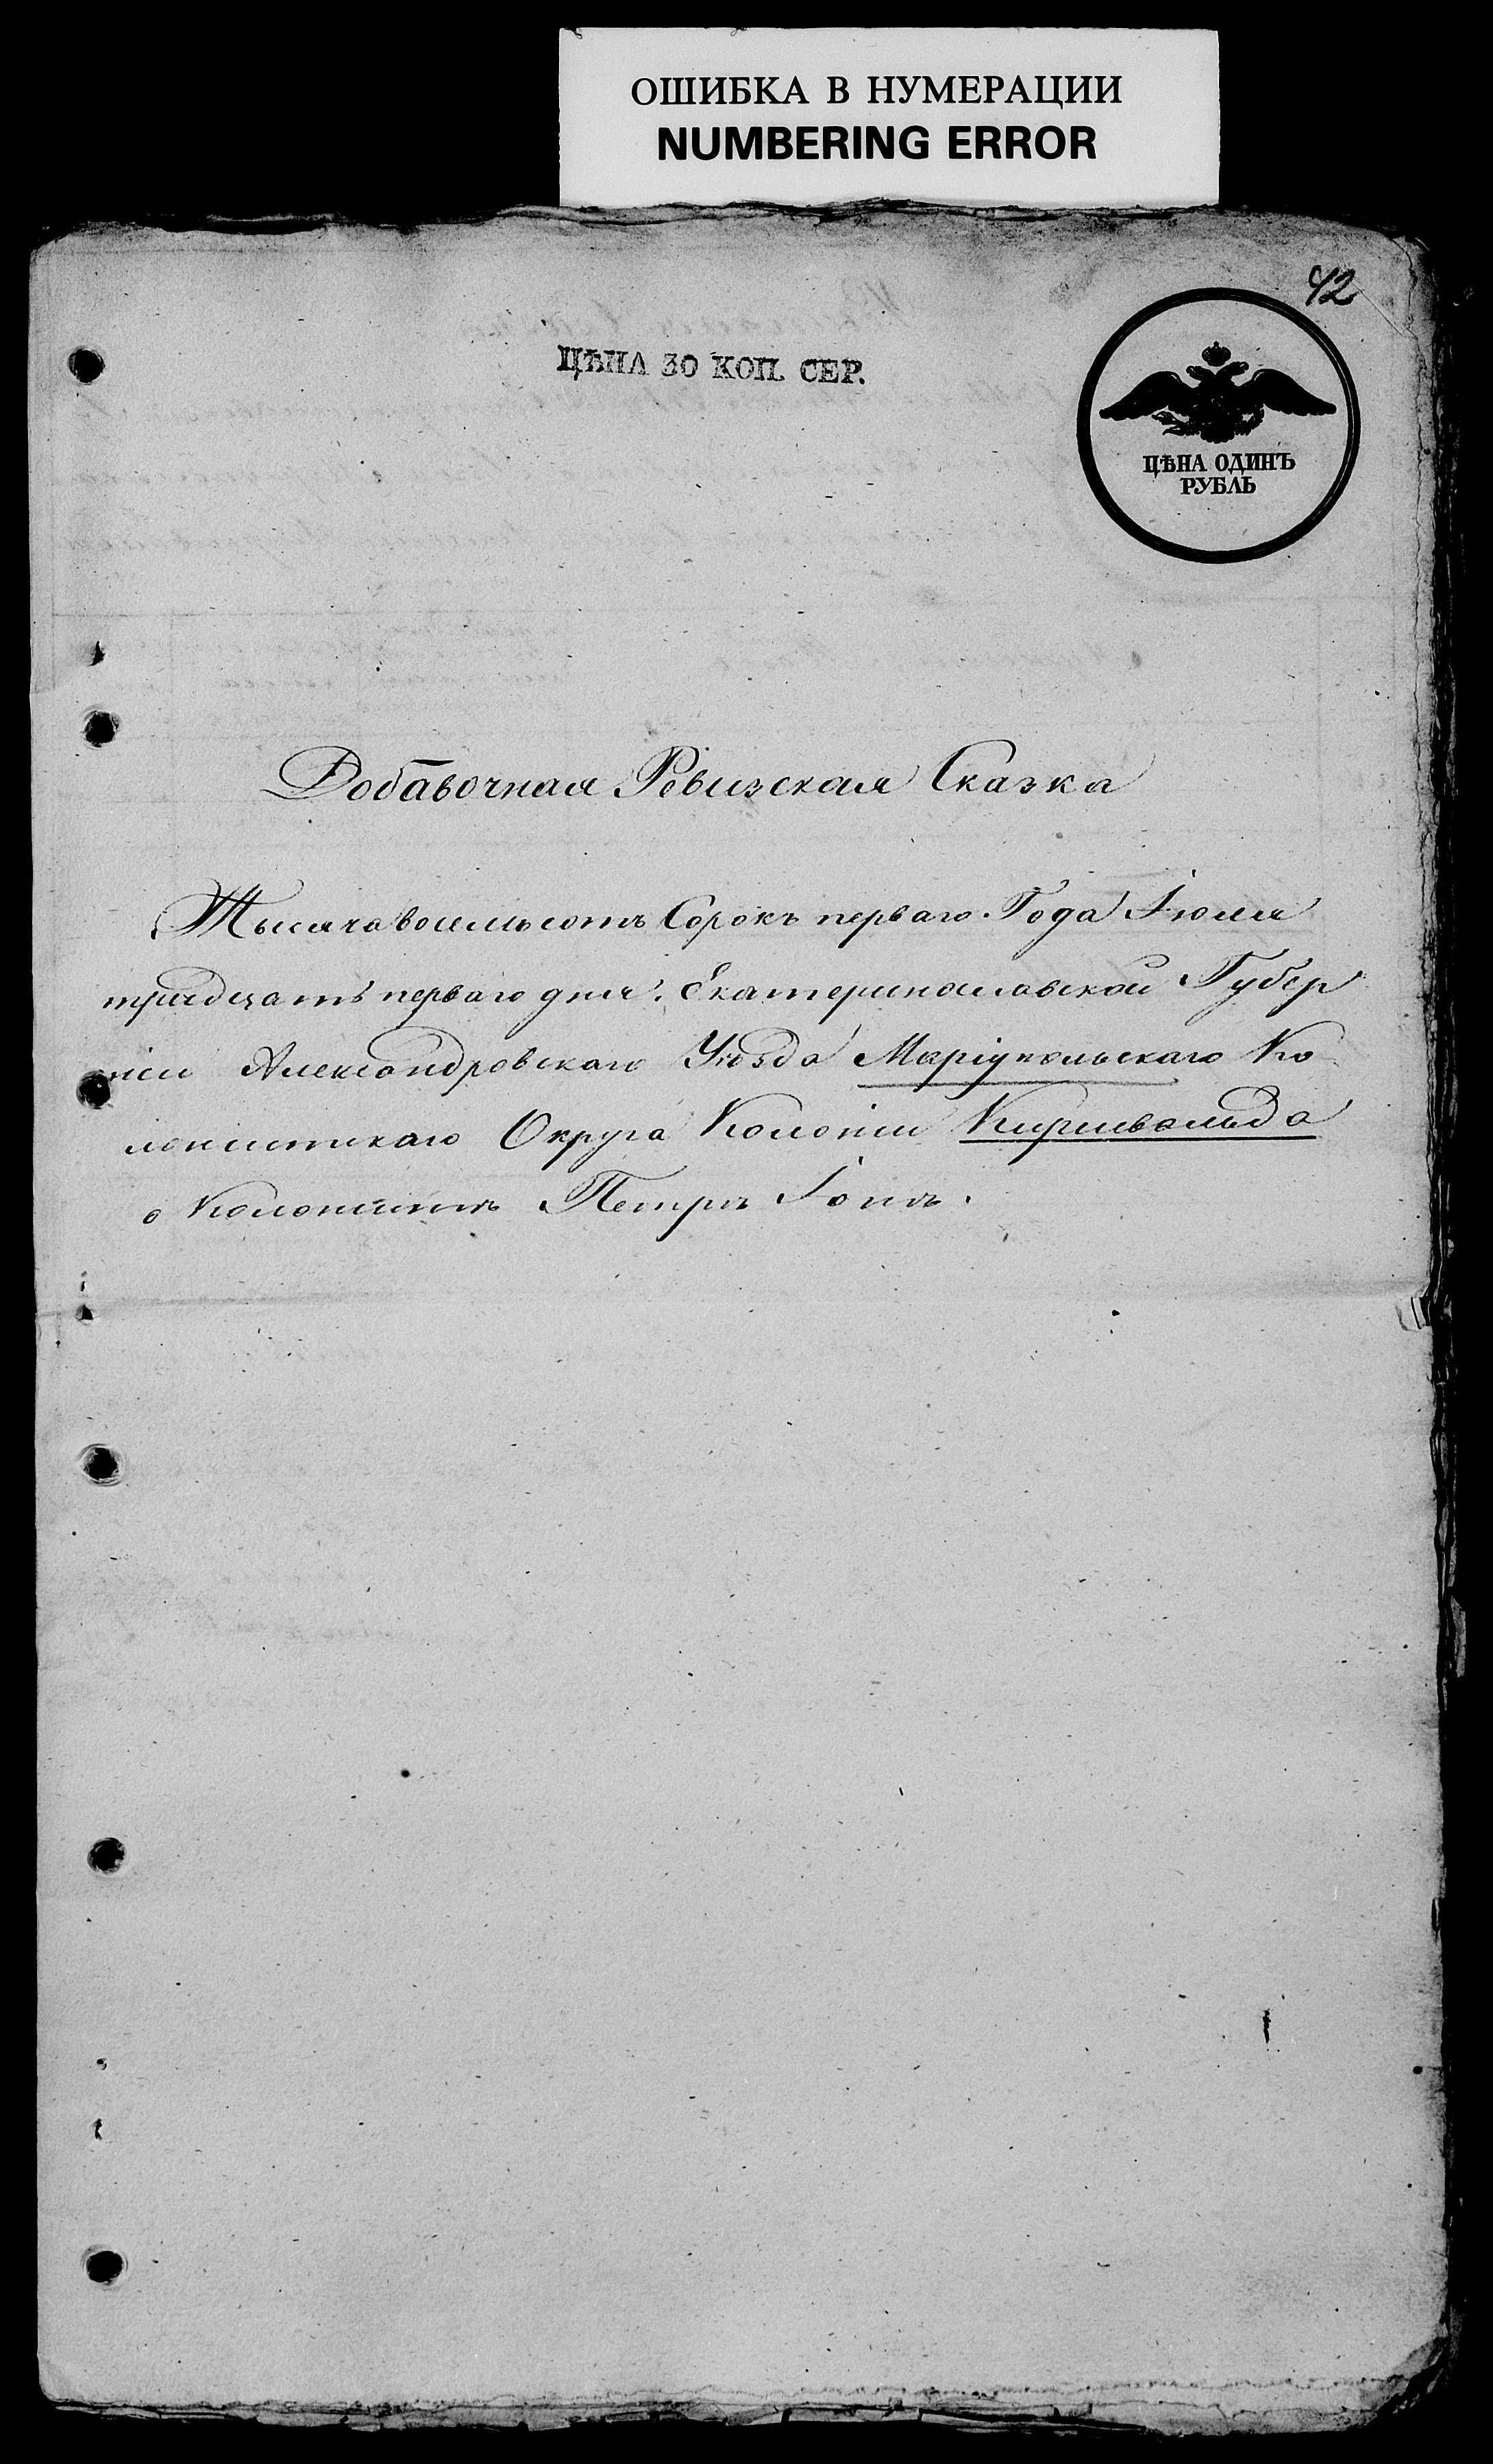 ОШИБКА В НУМЕРАЦИИ
NUMBERING ERROR
42
ЦѢНА 30 КОП. СЕР.
ЦѢНА ОДИНЪ
РУБЛЬ
Добавочная Ревизская Сказка
Тысяча восемьсотъ Сорокъ перваго Года Іюля
тридцать перваго дня. Екатеринославской Губер
ніи Александровскаго Уѣзда Маріупольскаго Ко
лонистскаго Округа Колоніи Киршвальда
о Колонистѣ Петрѣ Гопѣ.